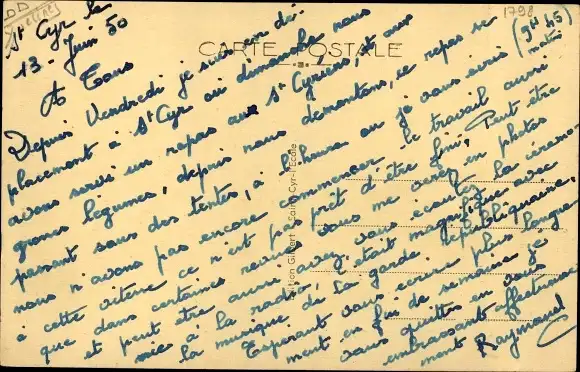 1798
CARTE POSTALE
St Cyr le
13 - Juin 50
A Tous
Depuis Vendredi je suis en dé-
placement à St Cyr où dimanche nous
avons servi un repas aux St Cyriens, et aux
grosses légumes, depuis nous démontons, ce repas se
passant sous des tentes, à l'heure où je vous écris (9H45)
matin
nous n'avons pas encore commencer le travail aussi
à cette vitesse ce n'est pas prêt d'être fini, Peut être
que dans certaines revues vous me verez en photos
et peut être aussi avez vous écoutez la cérémo-
nie à la radio, c'était magnifique avec
la musique de la garde républiquaine,
Esperant vous ecrire plus longue
ment en fin de semaine je
vous quitte en vous
embrassant affectueuse
ment Raymond